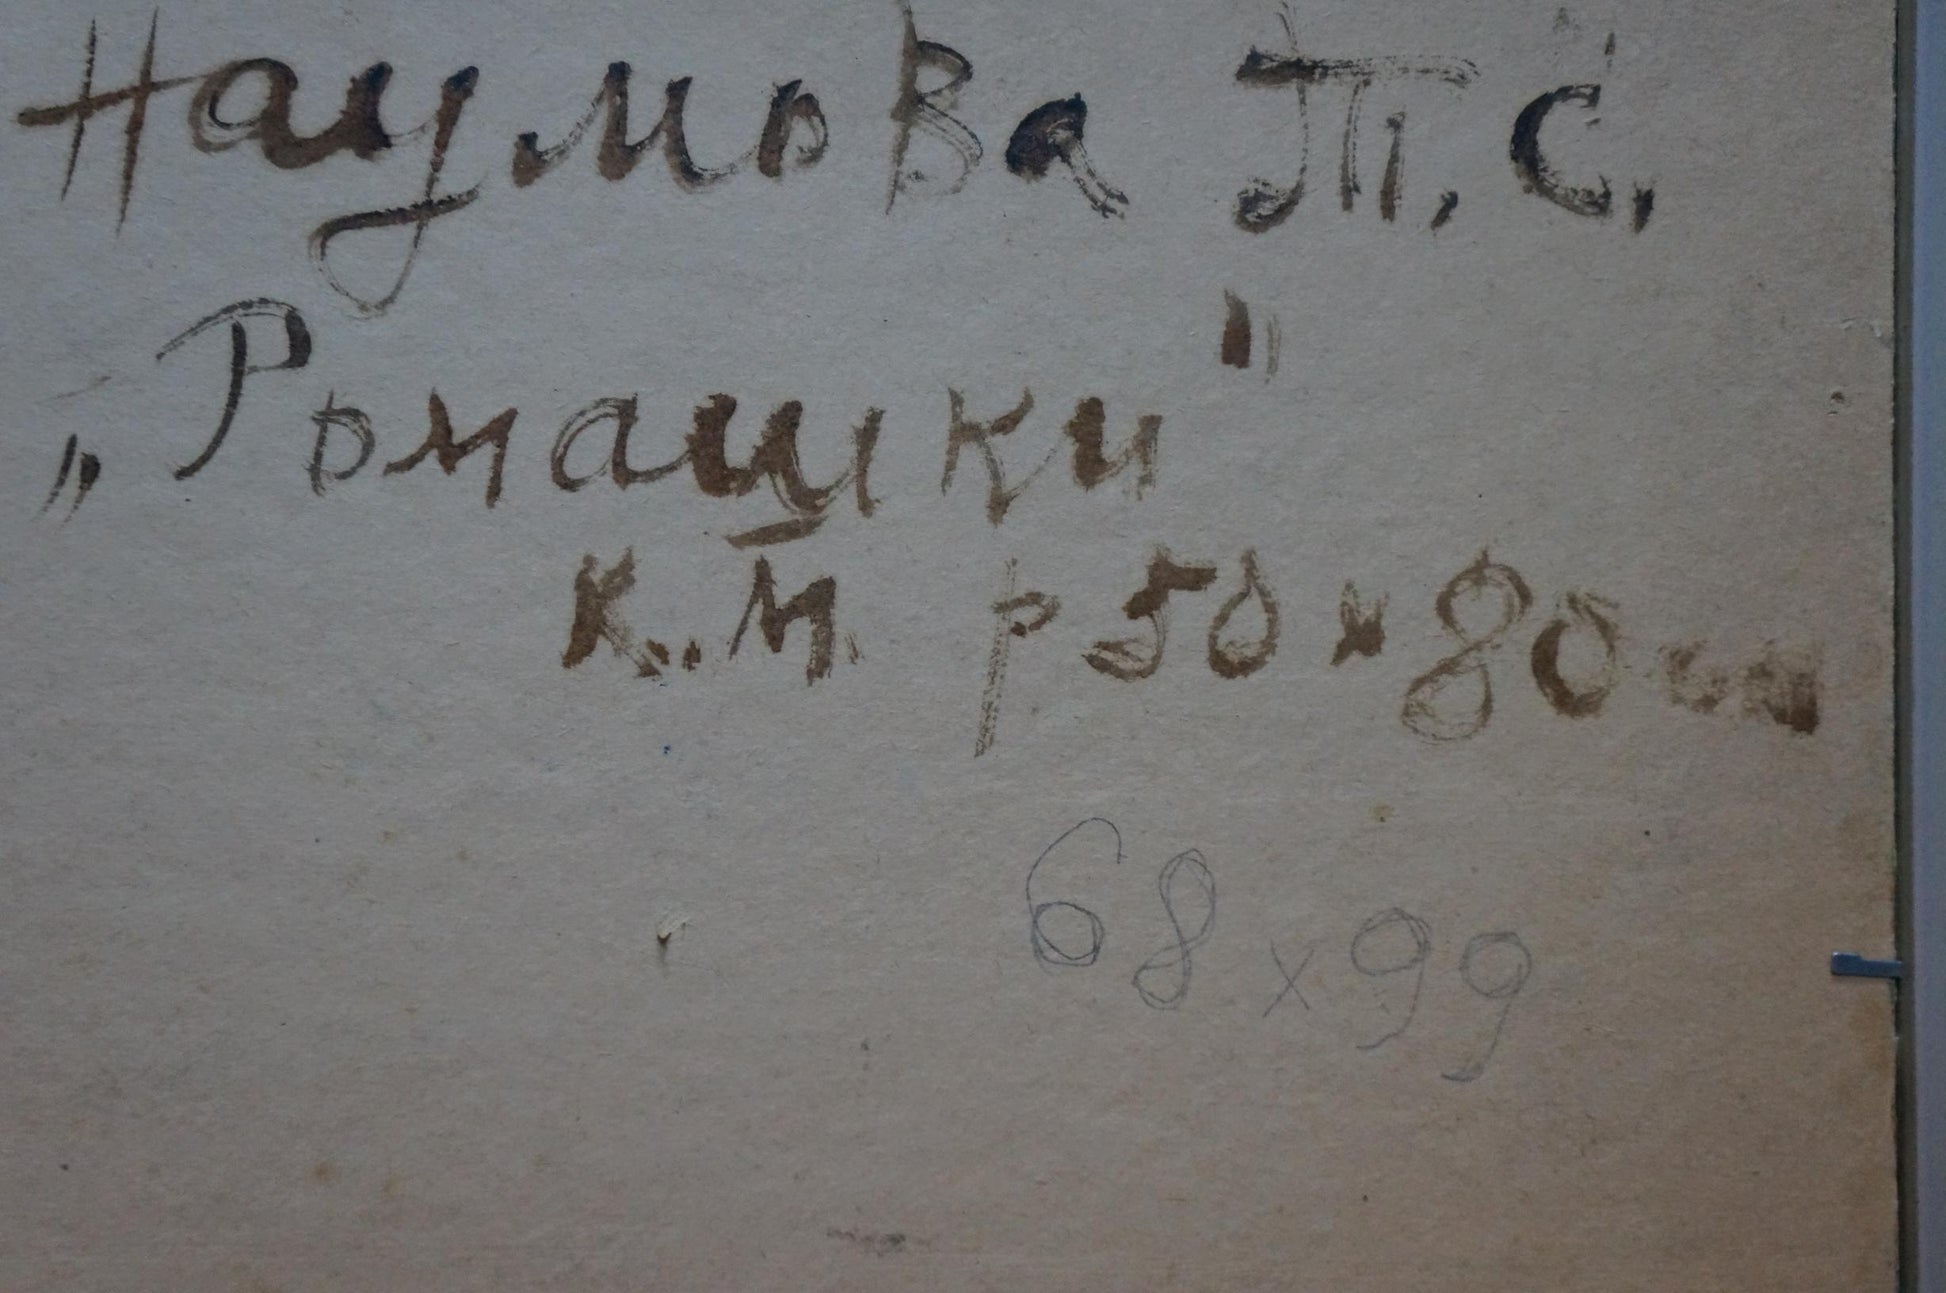 Наумова Т.С.
„Ромашки"
К.М. р 50х80см
68х99